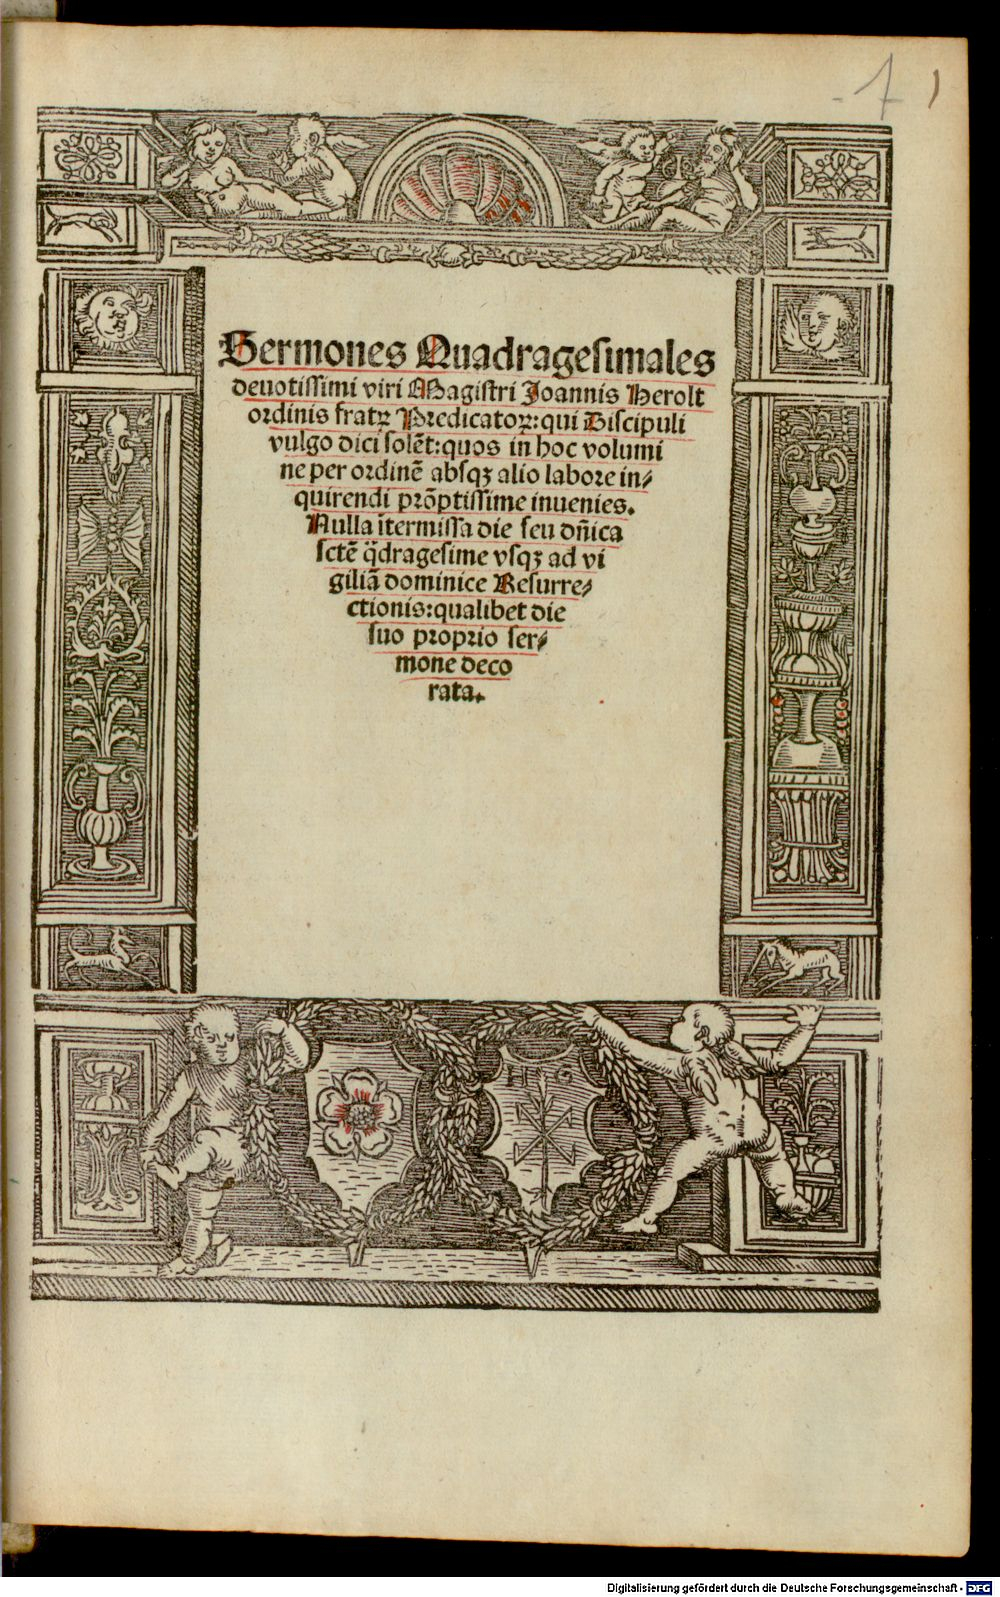 1 1
Sermones Quadragesimales
deuotissimi viri Magistri Joannis Herolt
ordinis fratꝝ Predicatoꝝ: qui Discipuli
vulgo dici solēt: quos in hoc volumi
ne per ordinē absqꝫ alio labore in⸗
quirendi prōptissime inuenies.
Nulla ītermissa die seu dñica
sctē q̄dragesime vsqꝫ ad vi
giliā dominice Resurre⸗
ctionis: qualibet die
suo proprio ser⸗
mone deco
rata.
H G
Digitalisierung gefördert durch die Deutsche Forschungsgemeinschaft - DFG